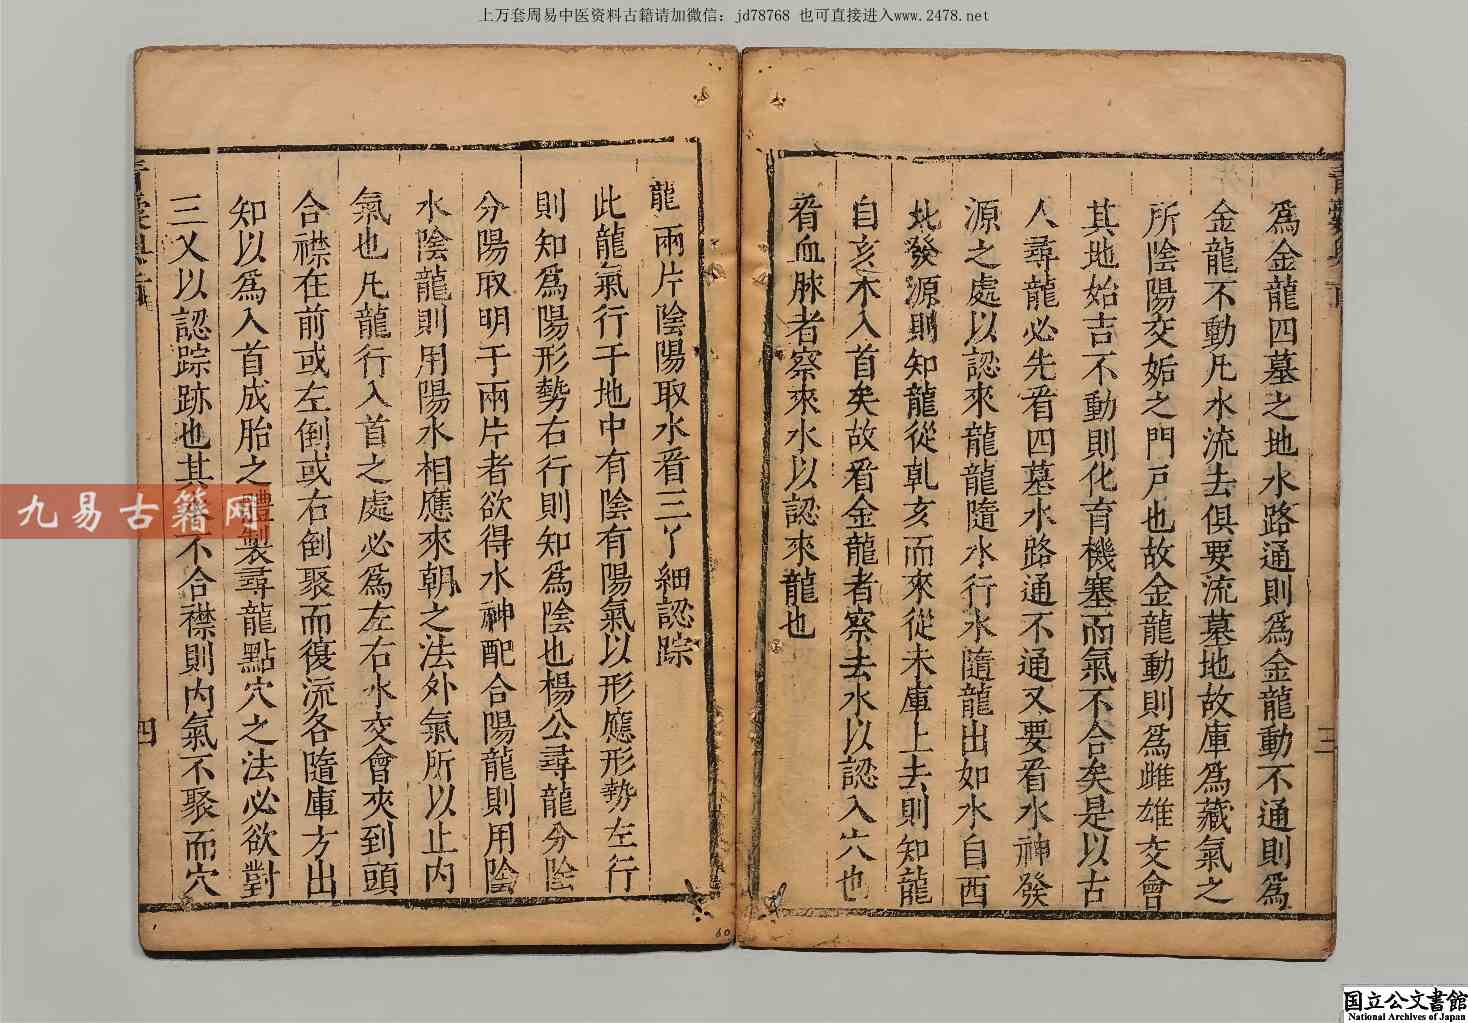 上万套周易中医资料古籍请加微信：jd78768 也可直接进入www.2478.net
爲金龍四墓之地水路通則爲金龍動不通則爲
金龍不動凡水流去俱要流墓地故庫爲藏氣之
所陰陽交姤之門戸也故金龍動則爲雌雄交會
其地始吉不動則化育機塞而氣不合矣是以古
人尋龍必先看四墓水路通不通又要看水神發
源之處以認來龍龍隨水行水隨龍出如水自西
北發源則知龍從乹亥而來從未庫上去則知龍
自亥木入首矣故看金龍者察去水以認入穴也
看血脉者察來水以認來龍也
三
龍兩片陰陽取水看三丫細認踪
此龍氣行于地中有陰有陽氣以形應形勢左行
則知爲陽形勢右行則知爲陰也楊公尋龍分陰
分陽取明于兩片者欲得水神配合陽龍則用陰
水陰龍則用陽水相應來朝之法外氣所以止内
氣也凡龍行入首之處必爲左右水交會夾到頭
合襟在前或左倒或右倒聚而復流各隨庫方出
知以爲入首成胎之體製尋龍點穴之法必欲對
三乂以認踪跡也其不合襟則内氣不聚而穴
四
九易古籍网
60
国立公文書館
National Archives of Japan